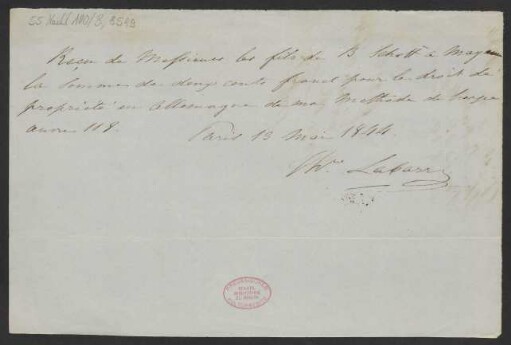 55 Nachl 100/B, 3549
Reçu de Messieurs les fils de B Schott à Mayence
la somme de deux cents francs pour le droit de
propriété en Allemagne de ma Méthode de harpe
œuvre 118.
Paris 13 Mai 1844.
Th. Labarre